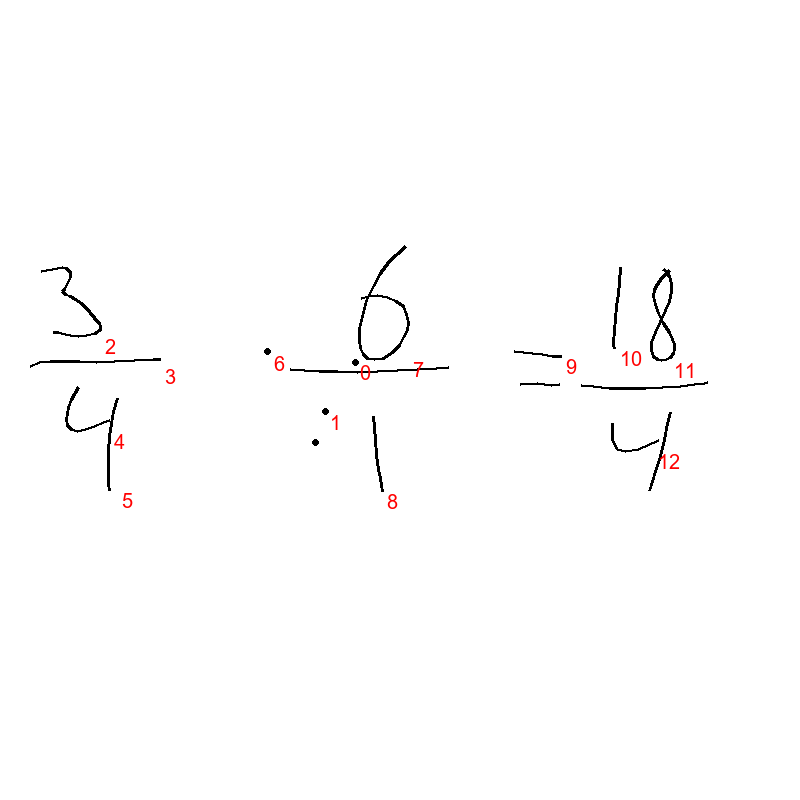 3/4 · 6/1 = 18/4
2 3 4 5 6 0 7 1 8 9 10 11 12